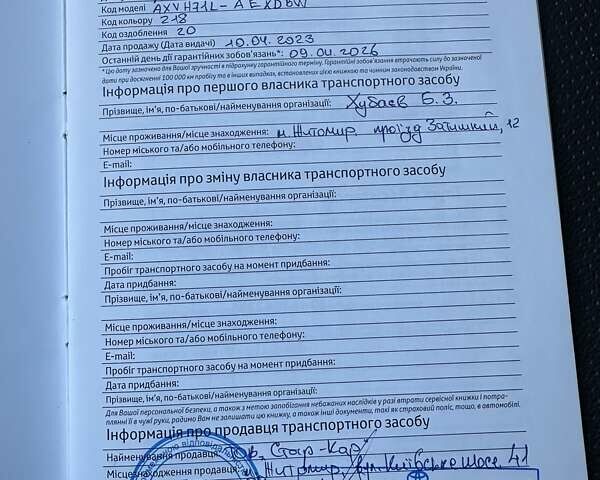 Код моделі AXVH71L-AEXDBW
Код кольору 218
Код оздоблення 20
Дата продажу (Дата видачі) 10.04.2023
Останній день дії гарантійних зобов'язань*: 09.04.2026
*Цю дату зазначено для Вашої зручності в підрахунку гарантійного терміну. Гарантійні зобов'язання втрачають силу до зазначеної
дати при досягненні 100 000 км пробігу та в інших випадках, встановлених цією книжкою та чинним законодавством України.
Інформація про першого власника транспортного засобу
Прізвище, ім'я, по-батькові/найменування організації: Хубаєв Б. З.
Місце проживання/місце знаходження: м. Житомир проїзд Затишний, 12
Номер міського та/або мобільного телефону:
E-mail:
Інформація про зміну власника транспортного засобу
Прізвище, ім'я, по-батькові/найменування організації:
Місце проживання/місце знаходження:
Номер міського та/або мобільного телефону:
E-mail:
Пробіг транспортного засобу на момент придбання:
Дата придбання:
Прізвище, ім'я, по-батькові/найменування організації:
Місце проживання/місце знаходження:
Номер міського та/або мобільного телефону:
E-mail:
Пробіг транспортного засобу на момент придбання:
Дата придбання:
Прізвище, ім'я, по-батькові/найменування організації:
Для Вашої персональної безпеки, а також з метою запобігання небажаних наслідків у разі втрати сервісної книжки і потра-
плянні її в чужі руки, радимо Вам не залишати цю книжку, а також інші документи, такі як страховий поліс, тощо, в автомобілі.
Інформація про продавця транспортного засобу
Найменування продавця Стар-Кар"
Місцезнаходження продавця м. Житомир, вул. Київське шосе 41